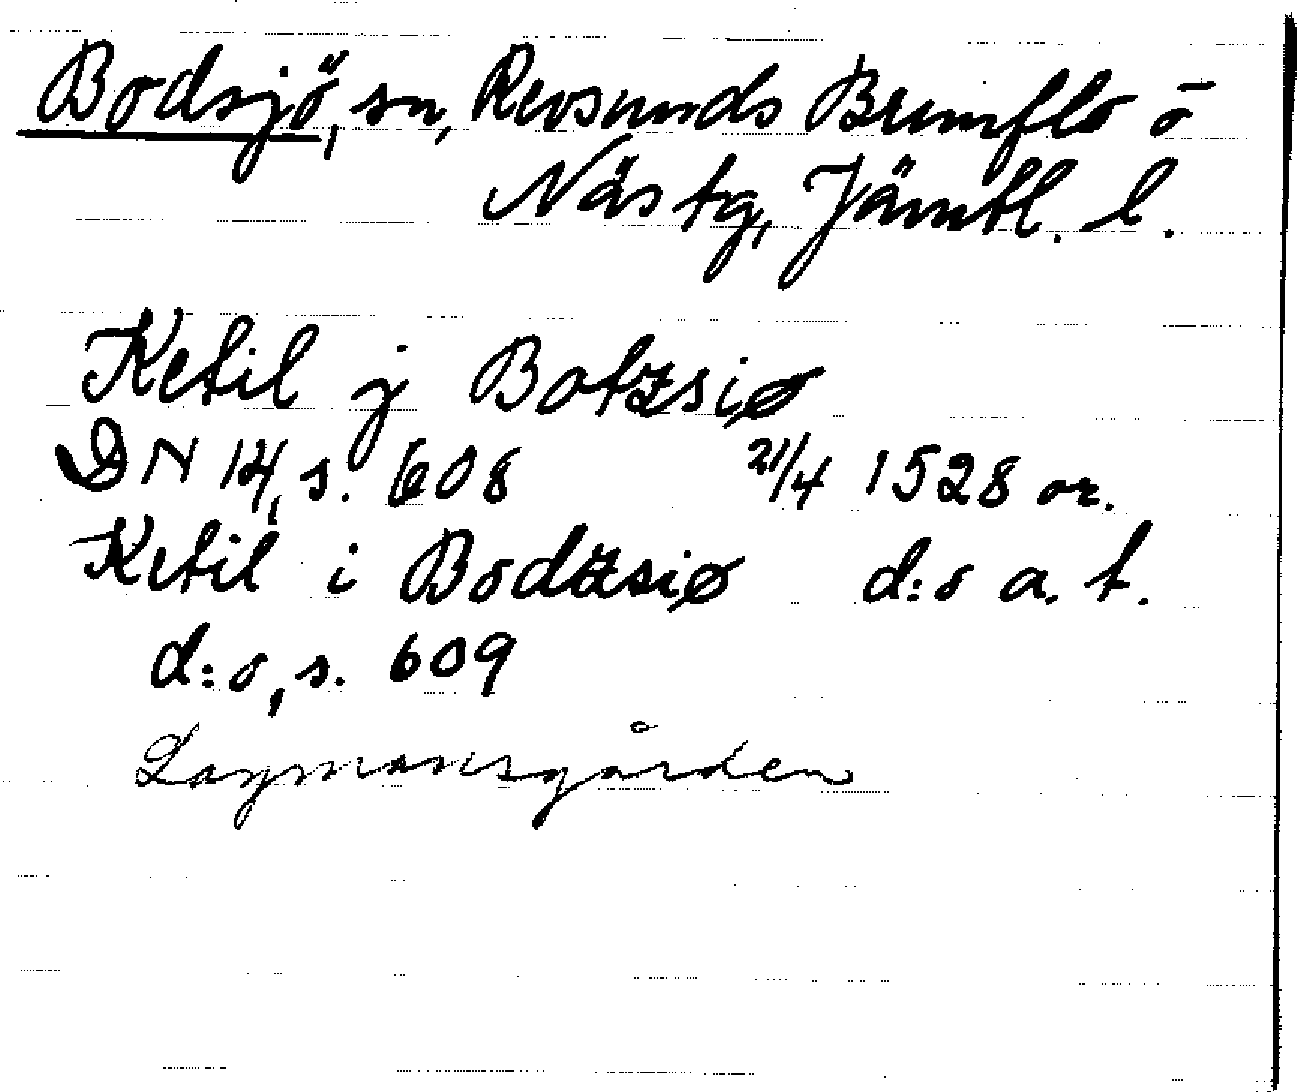 Bodsjö, sn, Revsunds Brunflo o
Näs tg, Jämtl. l.
Ketil j Botzsiø
DN 14, s. 608 21/4 1528 or.
Ketil i Bodzsiø d:o a. t.
d:o, s. 609
Lagmansgården